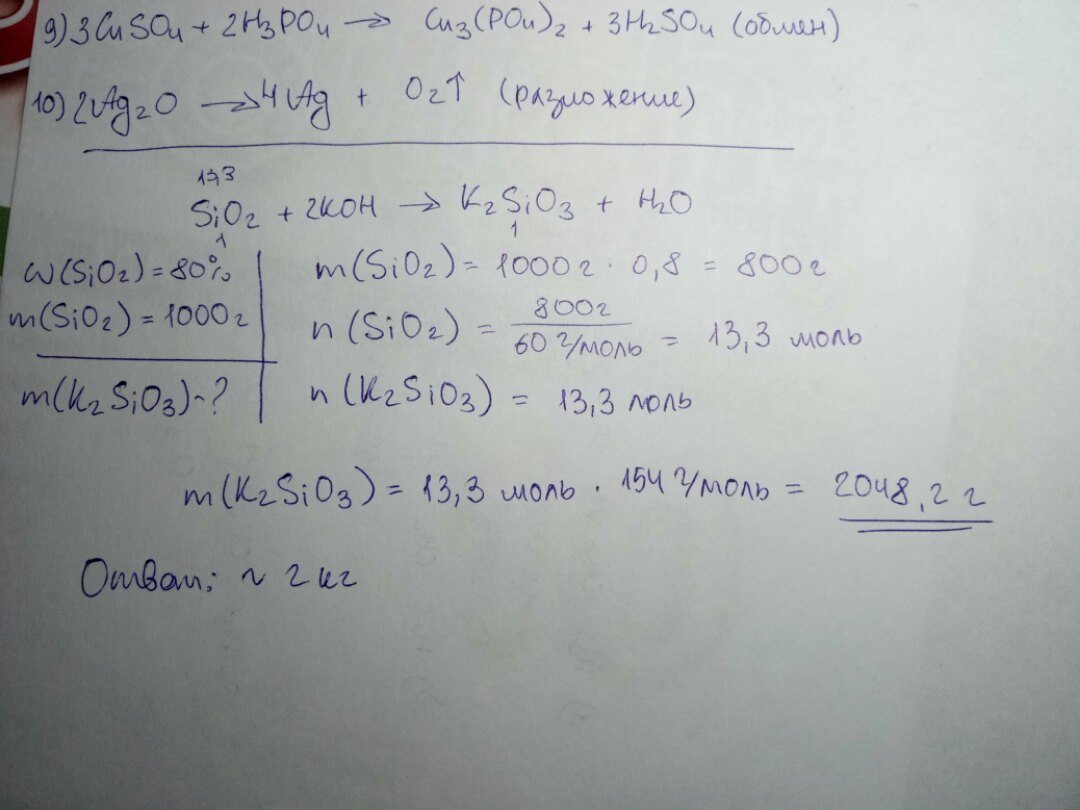 9) 3CuSO4 + 2H3PO4 → Cu3(PO4)2 + 3H2SO4 (обмен)
10) 2Ag2O → 4Ag + O2↑ (разложение)
13,3
SiO2 + 2KOH → K2SiO3 + H2O
1 1
ω(SiO2) = 80%
m(SiO2) = 1000 г
m(K2SiO3) - ?
m(SiO2) = 1000 г · 0,8 = 800 г
n(SiO2) = 800 г / 60 г/моль = 13,3 моль
n(K2SiO3) = 13,3 моль
m(K2SiO3) = 13,3 моль · 154 г/моль = 2048,2 г
Ответ: ~ 2 кг